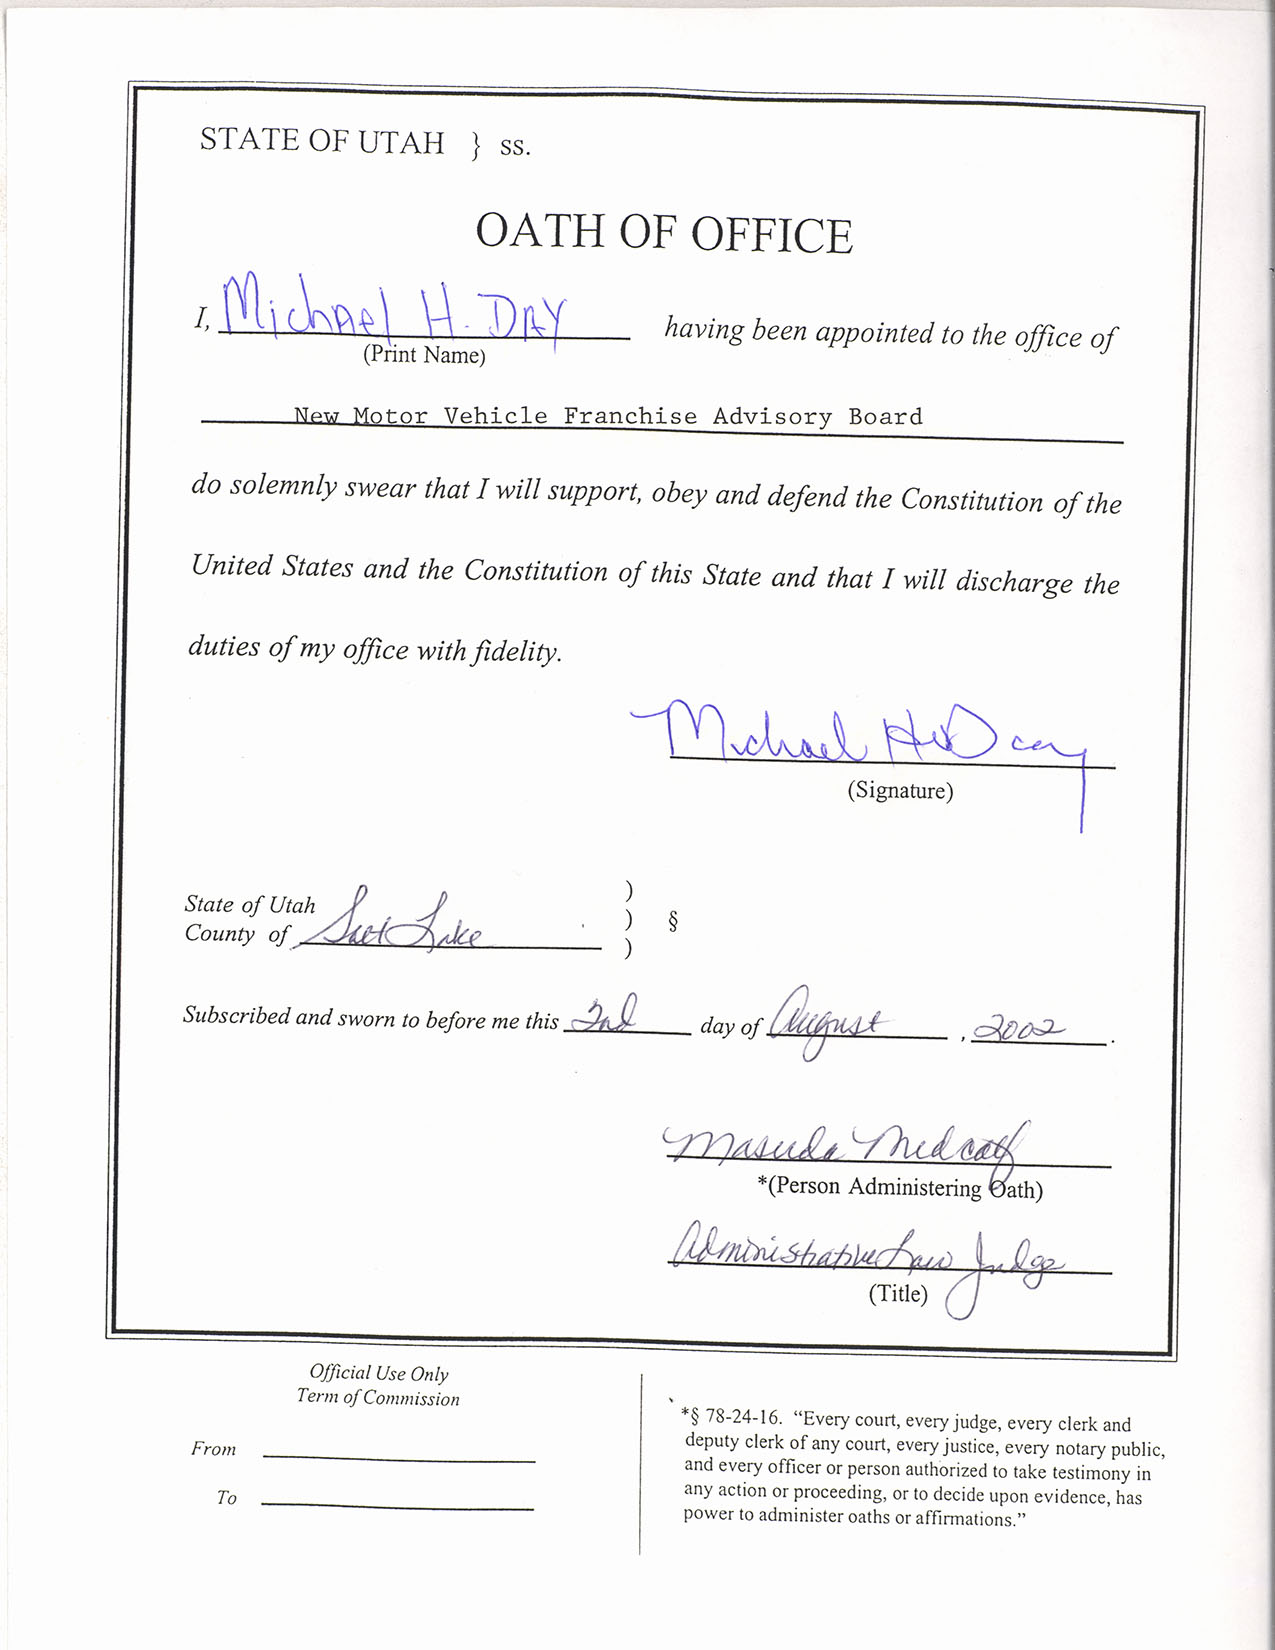 STATE OF UTAH } ss.
OATH OF OFFICE
I, Michael H. DAY having been appointed to the office of
(Print Name)
New Motor Vehicle Franchise Advisory Board
do solemnly swear that I will support, obey and defend the Constitution of the
United States and the Constitution of this State and that I will discharge the
duties of my office with fidelity.
Michael H. Day
(Signature)
State of Utah )
County of Salt Lake ) §
)
Subscribed and sworn to before me this 2nd day of August, 2002.
Masuda Medcalf
*(Person Administering Oath)
Administrative Law Judge
(Title)
Official Use Only
Term of Commission
From
To
*§ 78-24-16. “Every court, every judge, every clerk and
deputy clerk of any court, every justice, every notary public,
and every officer or person authorized to take testimony in
any action or proceeding, or to decide upon evidence, has
power to administer oaths or affirmations.”